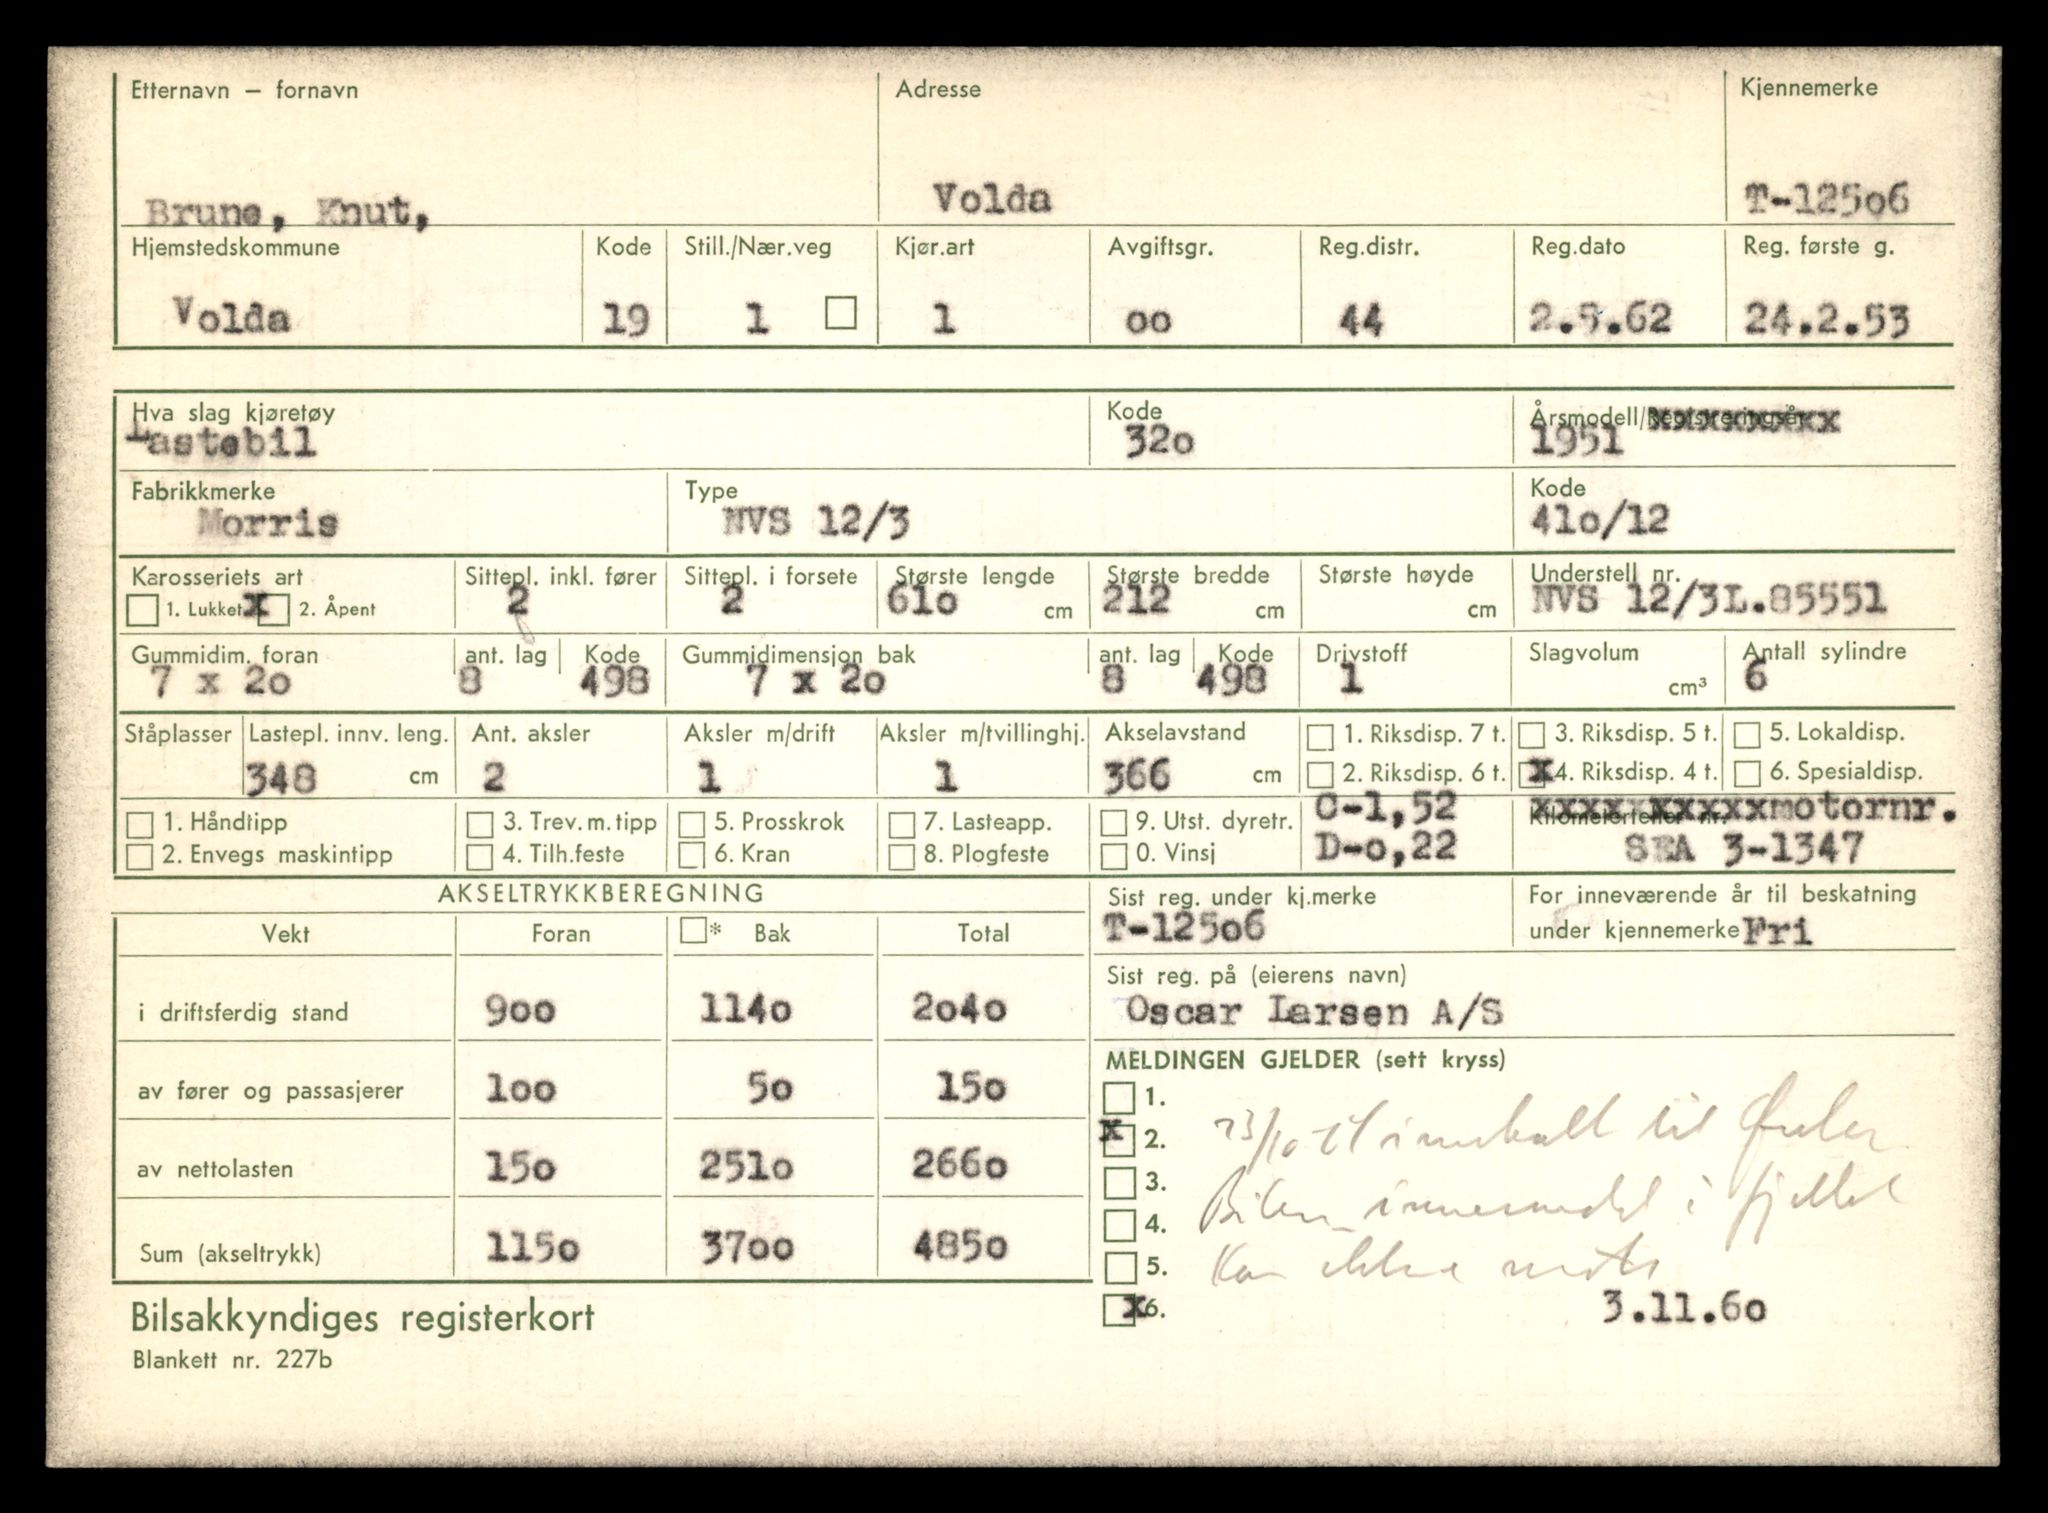 Etternavn – fornavn Adresse Kjennemerke
Brune, Knut, Volda T-12506
Hjemstedskommune Kode Still./Nær.veg Kjør.art Avgiftsgr. Reg.distr. Reg.dato Reg. første g.
Volda 19 1 1 oo 44 2.5.62 24.2.53
Hva slag kjøretøy Kode Årsmodell/Registreringsår
Lastebil 32o 1951
Fabrikkmerke Type Kode
Morris NVS 12/3 41o/12
Karosseriets art Sittepl. inkl. fører Sittepl. i forsete Største lengde Største bredde Største høyde Understell nr.
1. Lukket x 2. Åpent 2 2 61o cm 212 cm cm NVS 12/3L.85551
Gummidim. foran ant. lag Kode Gummidimensjon bak ant. lag Kode Drivstoff Slagvolum Antall sylindre
7 x 2o 8 498 7 x 2o 8 498 1 cm³ 6
Ståplasser Lastepl. innv. leng. Ant. aksler Aksler m/drift Aksler m/tvillinghj. Akselavstand 1. Riksdisp. 7 t. 3. Riksdisp. 5 t. 5. Lokaldisp.
348 cm 2 1 1 366 cm 2. Riksdisp. 6 t. x 4. Riksdisp. 4 t. 6. Spesialdisp.
1. Håndtipp 3. Trev. m. tipp 5. Prosskrok 7. Lasteapp. 9. Utst. dyretr. C-1,52 Kilometerteller nr. xxxxxxxxxxmotornr.
2. Envegs maskintipp 4. Tilh.feste 6. Kran 8. Plogfeste 0. Vinsj D-o,22 SEA 3-1347
AKSELTRYKKBEREGNING Sist reg. under kj.merke For inneværende år til beskatning
Vekt Foran * Bak Total T-125o6 under kjennemerke Fri
Sist reg. på (eierens navn)
i driftsferdig stand 9oo 114o 2o4o Oscar Larsen A/S
MELDINGEN GJELDER (sett kryss)
av fører og passasjerer 1oo 5o 15o 1.
x 2. innkalt til
av nettolasten 15o 251o 266o 3.
Bilen innesnødd i fjellet
4.
Sum (akseltrykk) 115o 37oo 485o 5. Kan ikke møte
Bilsakkyndiges registerkort x 6. 3.11.6o
Blankett nr. 227b